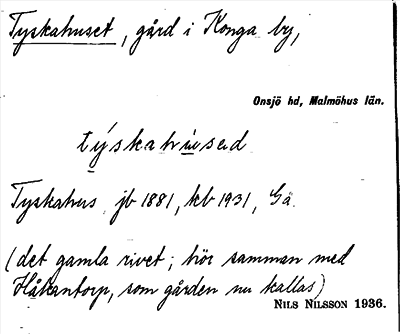 Tyskahuset, gård i Konga by,
Onsjö hd, Malmöhus län.
týskahu̇sad
Tyskahus jb 1881, kb 1931, Gä
(det gamla rivet; hör samman med
Håkantorp, som gården nu kallas)
NILS NILSSON 1936.